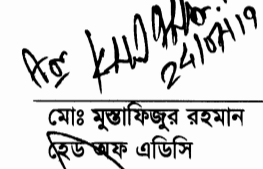 24/07/19
মোঃ মুস্তাফিজুর রহমান
হেড অফ এডিসি